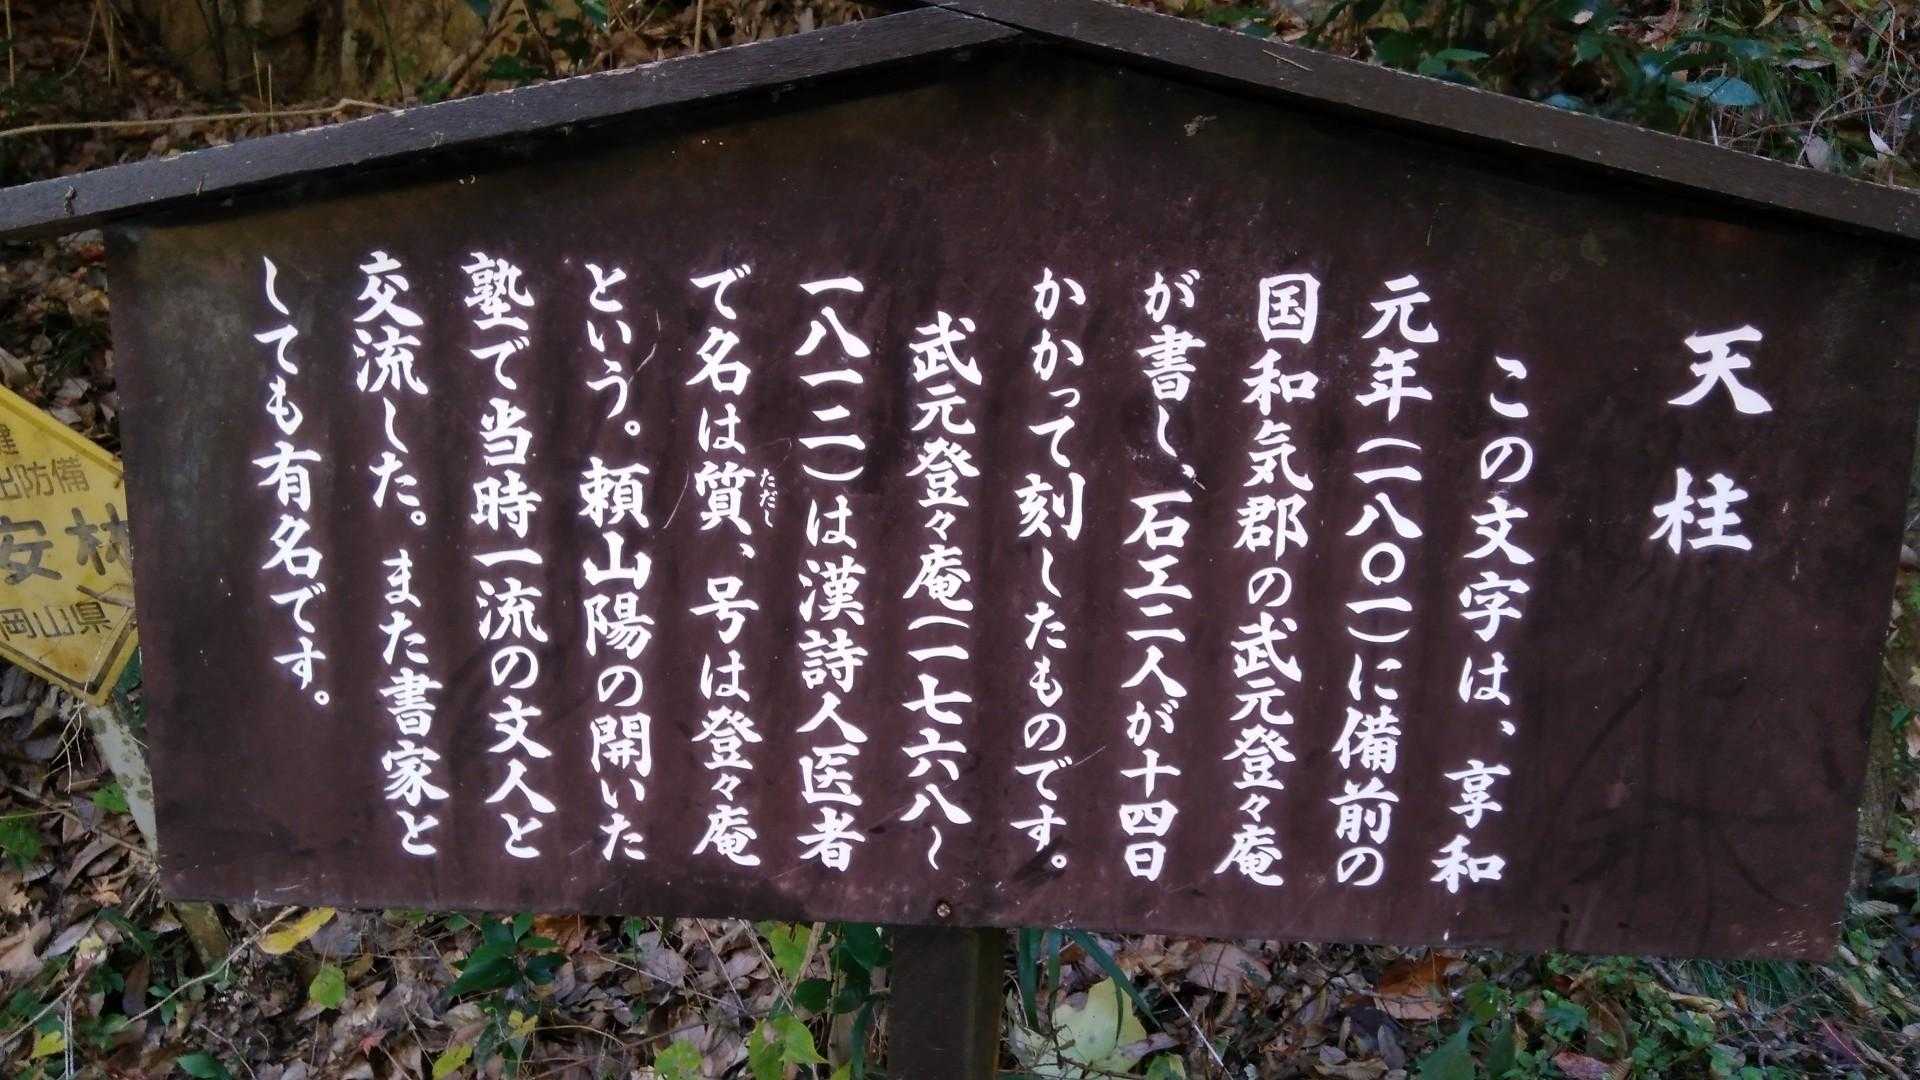 天柱
この文字は、享和
元年（一八〇一）に備前の
国和気郡の武元登々庵
が書し、石工二人が十四日
かかって刻したものです。
武元登々庵（一七六八〜
一八一二）は漢詩人医者
で名は質、号は登々庵
ただし
という。頼山陽の開いた
塾で当時一流の文人と
交流した。また書家と
しても有名です。
出防備
安林
岡山県